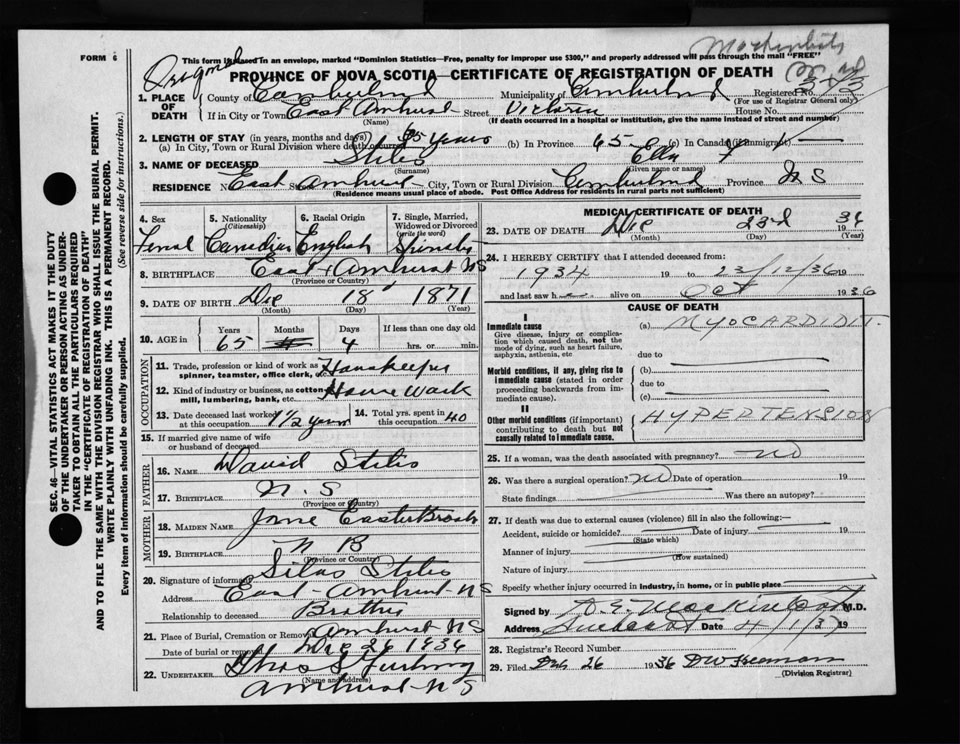 FORM 6
This form if passed in an envelope, marked "Dominion Statistics—Free, penalty for improper use $300," and properly addressed will pass through the mail "FREE"
Original
PROVINCE OF NOVA SCOTIA—CERTIFICATE OF REGISTRATION OF DEATH
1. PLACE OF DEATH
County of Cumberland Municipality of Cumberland Registered No.
(For use of Registrar General only)
If in City or Town East Amherst Street Victoria House No.
(Name) (If death occurred in a hospital or institution, give the name instead of street and number)
2. LENGTH OF STAY (in years, months and days)
(a) In City, Town or Rural Division where death occurred 65 years (b) In Province 65 (c) In Canada (if immigrant)
3. NAME OF DECEASED Stiles Ella
(Surname) (Given name or names)
RESIDENCE No. East Amherst City, Town or Rural Division Cumberland Province N S
(Residence means usual place of abode. Post Office Address for residents in rural parts not sufficient)
SEC. 46—VITAL STATISTICS ACT MAKES IT THE DUTY
OF THE UNDERTAKER OR PERSON ACTING AS UNDER-
TAKER TO OBTAIN ALL THE PARTICULARS REQUIRED
IN THE "CERTIFICATE OF REGISTRATION OF DEATH"
AND TO FILE THE SAME WITH THE DIVISION REGISTRAR WHO SHALL ISSUE THE BURIAL PERMIT.
WRITE PLAINLY WITH UNFADING INK. THIS IS A PERMANENT RECORD.
Every item of information should be carefully supplied. (See reverse side for instructions.)
4. Sex
Femal
5. Nationality
(Citizenship)
Canadian
6. Racial Origin
English
7. Single, Married,
Widowed or Divorced
(write the word)
8. BIRTHPLACE East Amherst NS
(Province or Country)
9. DATE OF BIRTH Dec 18 1871
(Month) (Day) (Year)
10. AGE in
Years Months Days If less than one day old
65 4 hrs. or min.
OCCUPATION
11. Trade, profession or kind of work as
spinner, teamster, office clerk, etc. Housekeeper
12. Kind of industry or business, as cotton
mill, lumbering, bank, etc. House Work
13. Date deceased last worked
at this occupation 1 1/2 years
14. Total yrs. spent in
this occupation 40
15. If married give name of wife
or husband of deceased
FATHER
16. NAME David Stiles
17. BIRTHPLACE N. S
(Province or Country)
MOTHER
18. MAIDEN NAME Jane EasterBrook
19. BIRTHPLACE N B
(Province or Country)
20. Signature of informant Silas Stiles
Address East-Amherst-NS
Relationship to deceased Brother
21. Place of Burial, Cremation or Removal Amherst NS
Date of burial or removal Dec 26 1936
22. UNDERTAKER
(Name and address)
Amherst-NS
MEDICAL CERTIFICATE OF DEATH
23. DATE OF DEATH Dec 23rd 1936
(Month) (Day) (Year)
24. I HEREBY CERTIFY that I attended deceased from:
1934 19 to 23/12/36 19
and last saw h alive on Oct 1936
CAUSE OF DEATH
I
Immediate cause
Give disease, injury or complica-
tion which caused death, not the
mode of dying, such as heart failure,
asphyxia, asthenia, etc
(a) MYOCARDIDIT.
due to
Morbid conditions, if any, giving rise to
immediate cause (stated in order
proceeding backwards from im-
mediate cause).
(b)
due to
(c)
II
Other morbid conditions (if important)
contributing to death but not
causally related to immediate cause.
HYPERTENSION
25. If a woman, was the death associated with pregnancy? no
26. Was there a surgical operation? no Date of operation 19
State findings Was there an autopsy?
27. If death was due to external causes (violence) fill in also the following:—
Accident, suicide or homicide? Date of injury 19
(State which)
Manner of injury
(How sustained)
Nature of injury
Specify whether injury occurred in industry, in home, or in public place
Signed by M.D.
Address Date 4/1/37 19
28. Registrar's Record Number
29. Filed Dec 26 1936 DW Freeman
(Division Registrar)